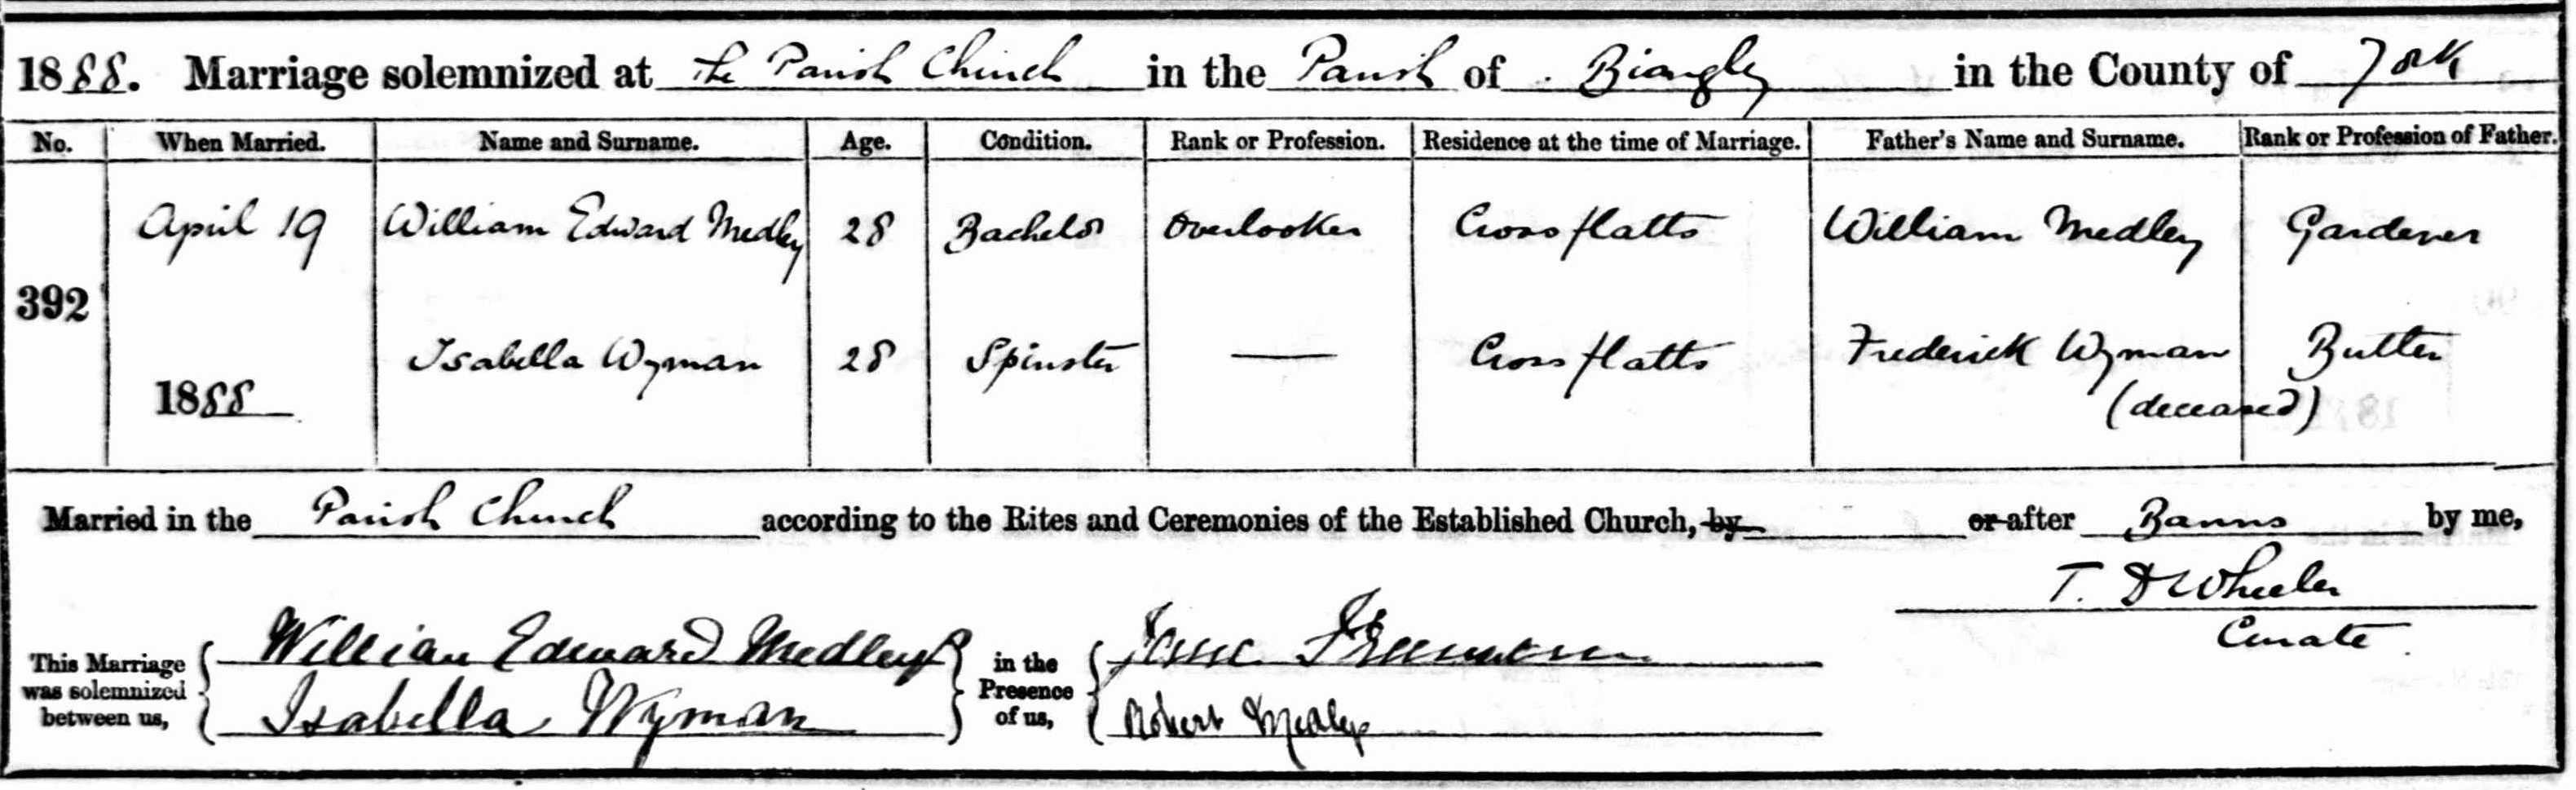 1888. Marriage solemnized at the Parish Church in the Parish of Bingley in the County of York
No. When Married. Name and Surname. Age. Condition. Rank or Profession. Residence at the time of Marriage. Father's Name and Surname. Rank or Profession of Father.
April 19 William Edward Medley 28 Bachelor Overlooker Crossflatts William Medley Gardener
392
Isabella Wyman 28 Spinster — Crossflatts Frederick Wyman Butler
1888 (deceased)
Married in the Parish Church according to the Rites and Ceremonies of the Established Church, by or after Banns by me,
T. D Wheeler
Curate.
This Marriage was solemnized between us,
William Edward Medley
Isabella Wyman
in the Presence of us,
Robert Medley